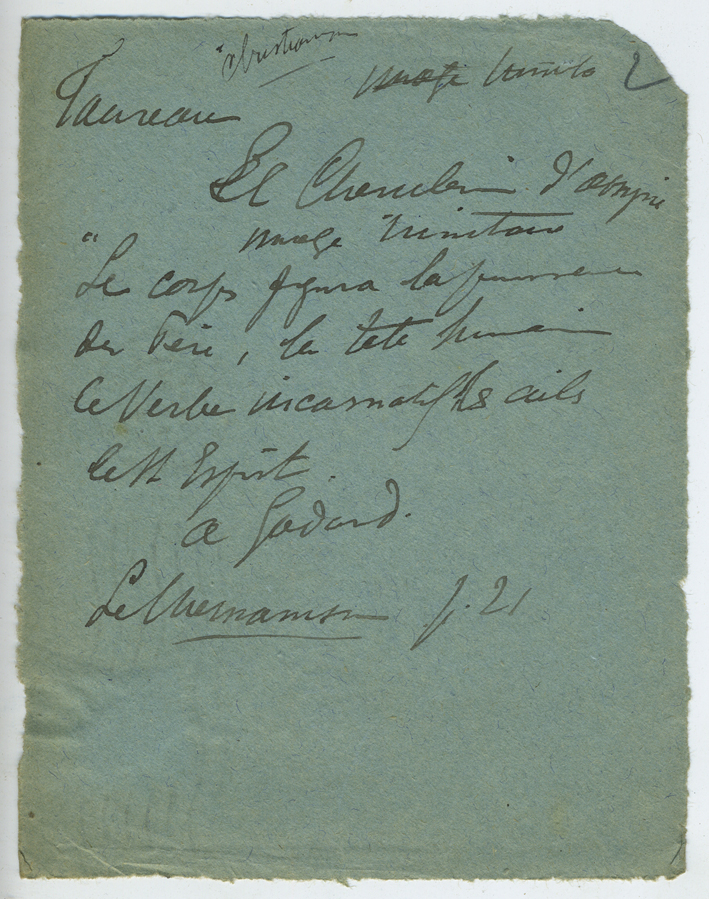 Christianisme
image trinité 2
Taureau
Le Cherubin d'assyrie
image trinitaire
"Le corps figura la puissance
du Père, la tête humain
le Verbe incarnatif les ails
le St Esprit.
A Godard.
Le p. 21